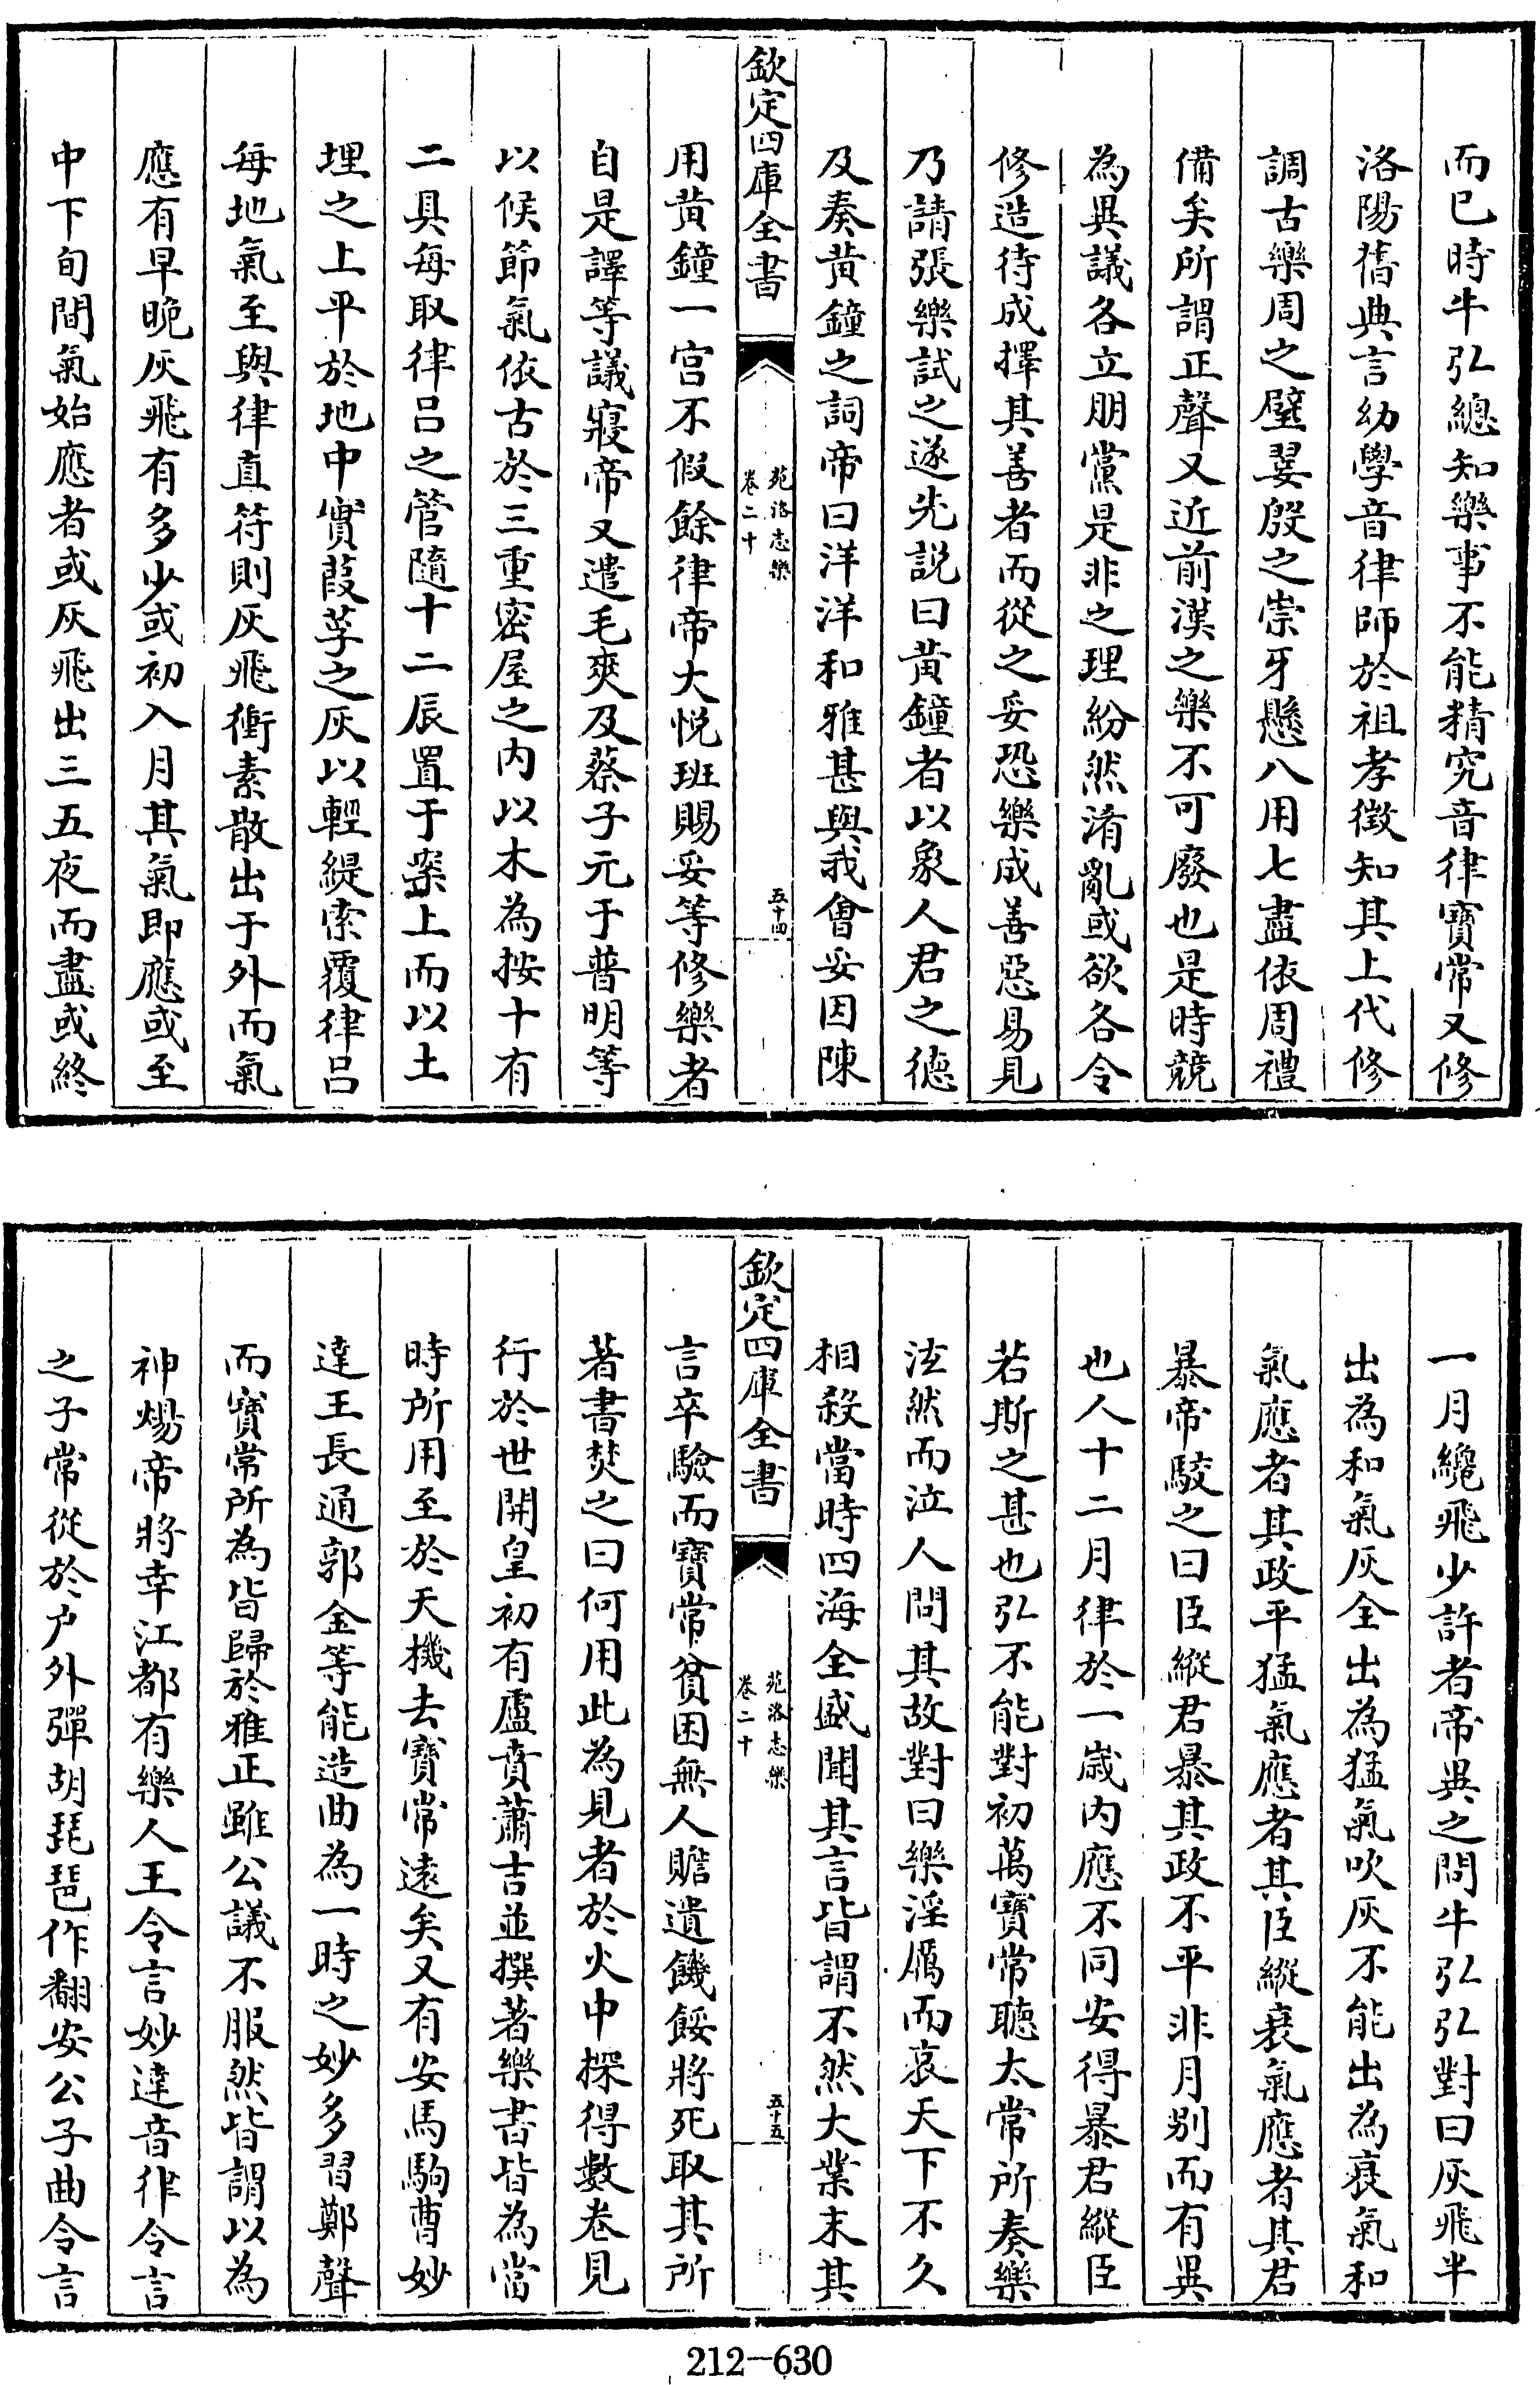 而已時牛弘總知樂事不能精究音律寶常又修
洛陽舊典言幼學音律師於祖孝徴知其上代修
調古樂周之璧翣殷之崇牙懸八用七盡依周禮
備矣所謂正聲又近前漢之樂不可廢也是時競
為異議各立朋黨是非之理紛然淆亂或欲各令
修造待成擇其善者而從之妥恐樂成善惡易見
乃請張樂試之遂先説曰黄鐘者以象人君之德
及奏黄鐘之詞帝曰洋洋和雅甚與我會妥因陳
欽定四庫全書
苑洛志樂
卷二十
五十四
用黄鐘一宫不假餘律帝大悦班賜妥等修樂者
自是譯等議寢帝又遣毛爽及蔡子元于普明等
以候節氣依古於三重密屋之内以木為按十有
二具每取律吕之管隨十二辰置于案上而以土
埋之上平於地中實葭莩之灰以輕緹索覆律吕
每地氣至與律直符則灰飛衝素散出于外而氣
應有早晩灰飛有多少或初入月其氣即應或至
中下旬間氣始應者或灰飛出三五夜而盡或終
一月纔飛少許者帝異之問牛弘弘對曰灰飛半
出為和氣灰全出為猛氣吹灰不能出為衰氣和
氣應者其政平猛氣應者其臣縱衰氣應者其君
暴帝駮之曰臣縱君暴其政不平非月别而有異
也人十二月律於一歲内應不同安得暴君縱臣
若斯之甚也弘不能對初萬寶常聴太常所奏樂
泫然而泣人問其故對曰樂淫厲而哀天下不久
相殺當時四海全盛聞其言皆謂不然大業末其
欽定四庫全書
苑洛志樂
卷二十
五十五
言卒驗而寶常貧困無人贍遺饑餒將死取其所
著書焚之曰何用此為見者於火中探得數卷見
行於世開皇初有盧賁蕭吉並撰著樂書皆為當
時所用至於天機去寶常遠矣又有安馬駒曹妙
達王長通郭金等能造曲為一時之妙多習鄭聲
而寶常所為皆歸於雅正雖公議不服然皆謂以為
神煬帝將幸江都有樂人王令言妙達音律令言
之子常從於户外彈胡琵琶作翻安公子曲令言
212-630